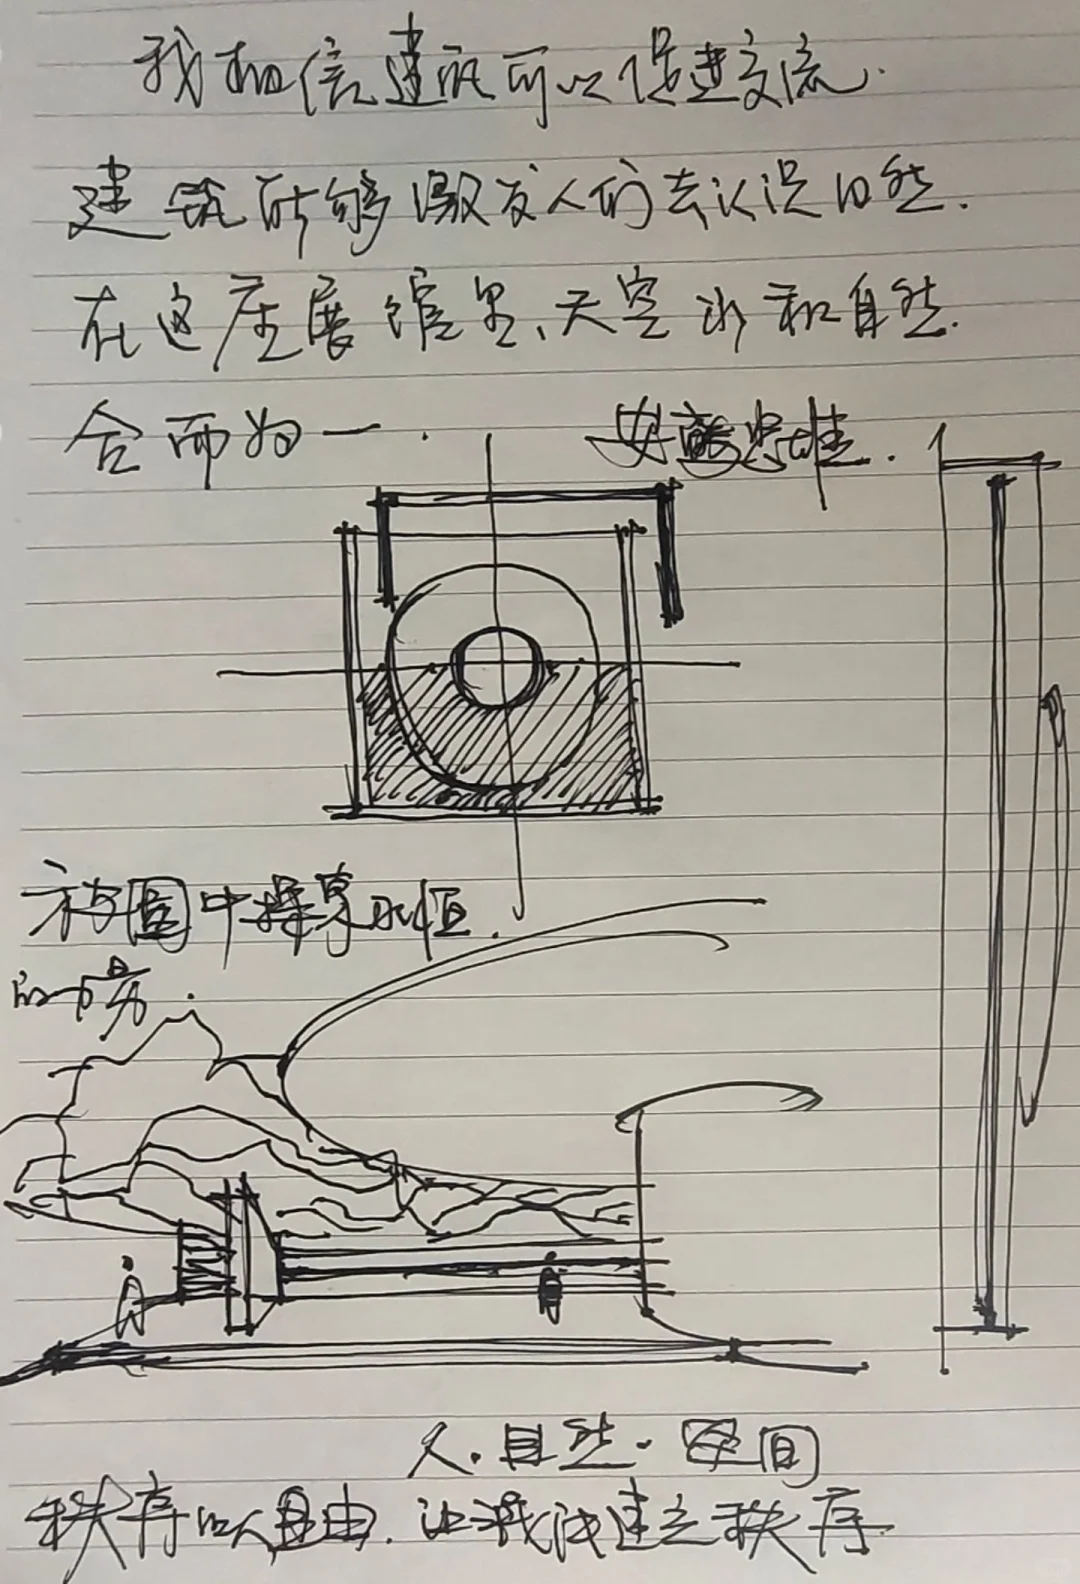 我相信建筑可以促进交流.
建筑能够激发人们去认识自然.
在这座展馆里、天空水和自然.
合而为一.
安藤忠雄.
方与圆中探享永恒.
的
人.自然.空间
秩序以自由.让减法建立秩序